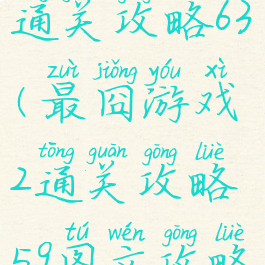 通关攻略63
zuì jiǒng yóu xì
(最囧游戏
tōng guān gōng lüè
2通关攻略
tú wén gōng lüè
59图文攻略